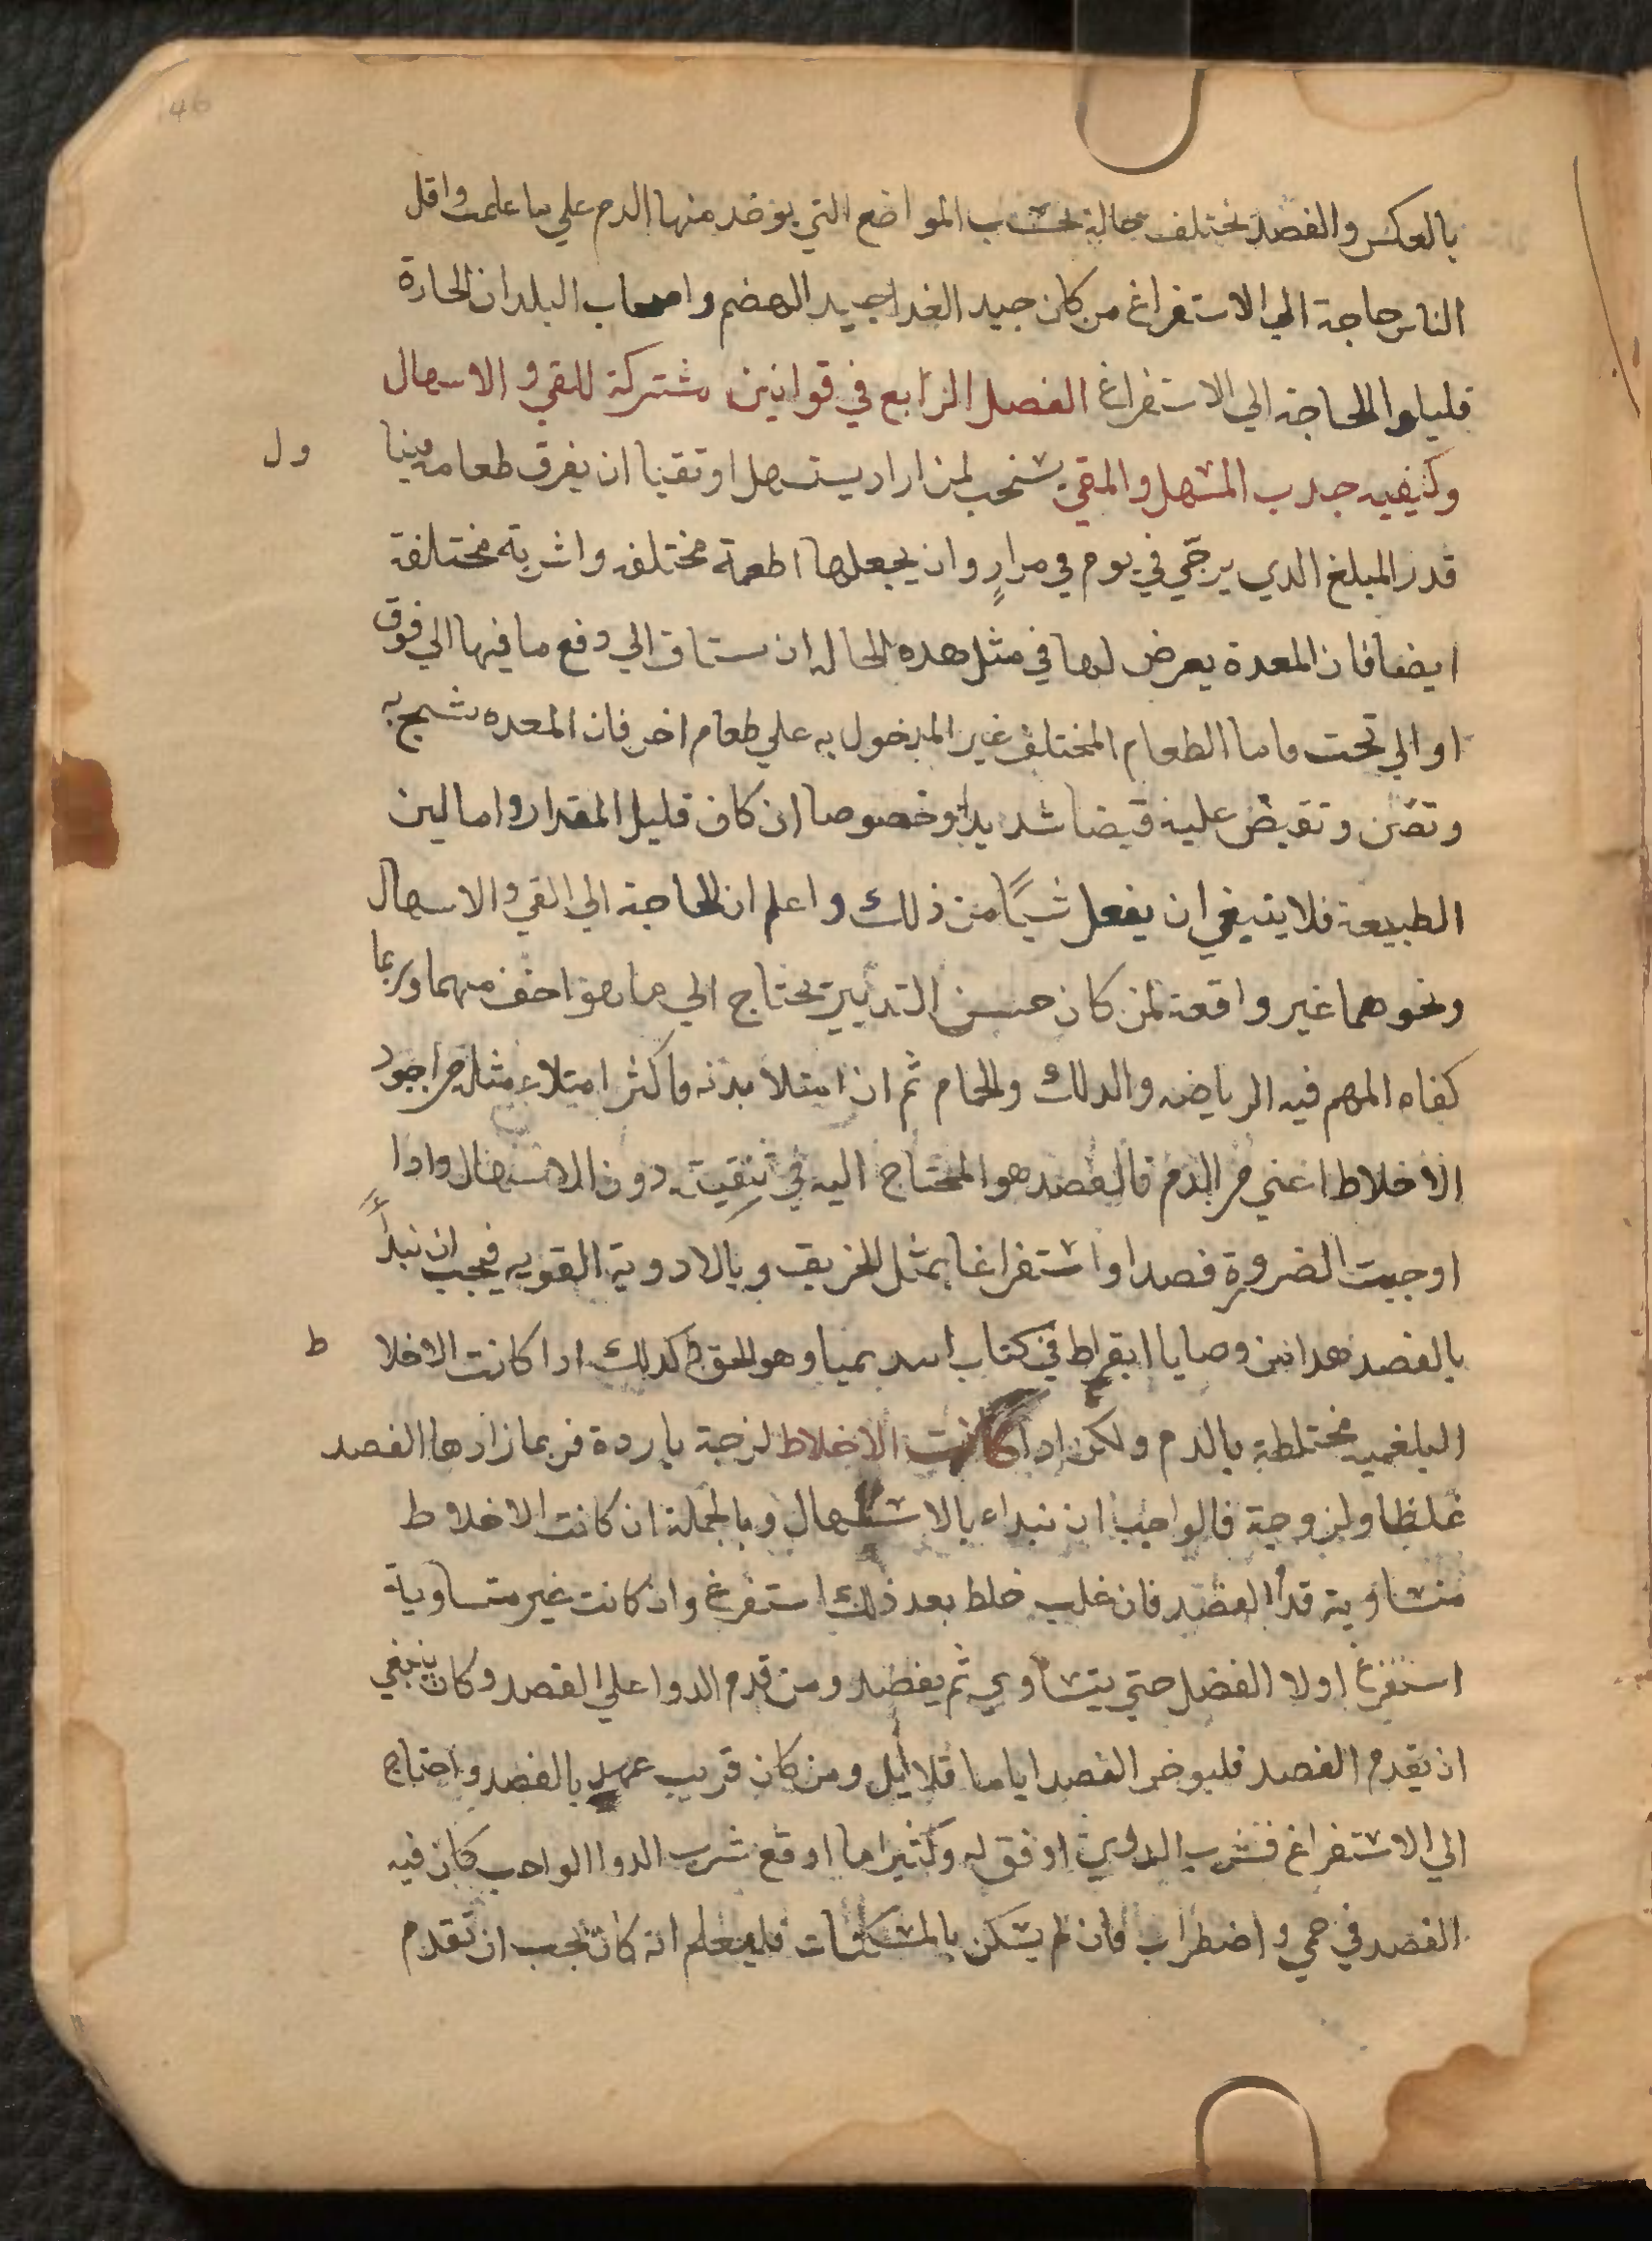 146
بالعكس والفصد يختلف حاله بحسب المواضع التي يوخد منها الدم علي ما علمت واقل
الناس حاجة الي الاستفراغ من كان جيد الغدا جيد الهضم واصحاب البلدان الحارة
قليلوا الحاجة الي الاستفراغ الفصل الرابع في قوانين مشتركة للقي والاسهال
وكيفيه جدب المسهل والمقي يستحب لمن اراد يستسهل او تقيا ان يفرق طعامه فيتنا
ول
قدر المبلغ الدي يرجّي في يوم في مرارٍ وان يجعلها اطعمة مختلفه واشربة مختلفة
ايضا فان المعدة يعرض لها في مثل هده الحاله ان ستاق الي دفع ما فيها الي فوق
او الي تحت واما الطعام المختلف غير المدخول به علي طعام اخر فان المعده تشح به
وتضن وتقبض عليه قبضا شديدا وخصوصا ان كان قليل المقدار واما لين
الطبيعة فلا ينبغي ان يفعل شيًا من ذلك واعلم ان الحاجة الي القي والاسهال
ونحوهما غير واقعة لمن كان حسن التدبير يحتاج الي ما هو اخف منهما وربما
كفاه المهم فيه الرياضه والدلك والحمام ثم ان امتلا بدنه واكثر امتلاء مثله من اجود
الاخلاط اعني من الدم فالفصد هو المحتاج اليه في تنقيته دون الاسهال وادا
اوجبت الضرورة فصدا واستفراغا بمثل الخريق وبالادوية القويه فيجب ان نبدأ
بالفصد هدا من وصايا ابقراط في كتاب ابيديميا وهو الحق وكدلك ادا كانت الاخلا
ط
البلغميه مختلطة بالدم ولكن ادا كانت الاخلاط لزجة باردة فربما زادها الفصد
غلظا ولزوجة فالواجب ان نبداء بالاسهال وبالجملة ان كانت الاخلاط
متساوية قدم الفصد فان غلب خلط بعد ذلك استفرغ وان كانت غير متساوية
استفرغ اولا الفضل حتي يتساوي ثم يفصد ومن قدم الدوا علي الفصد وكان ينبغي
ان يقدم الفصد فليوخر الفصد اياما قلايل ومن كان قريب عهد بالفصد واحتاج
الي الاستفراغ فشرب الدوا اوفق له وكثيرا ما اوقع شرب الدوا الواجب كان فيه
الفصد في حمي واضطراب فان لم يسكن بالمسكنات فليعلم انه كان يجب ان تقدم